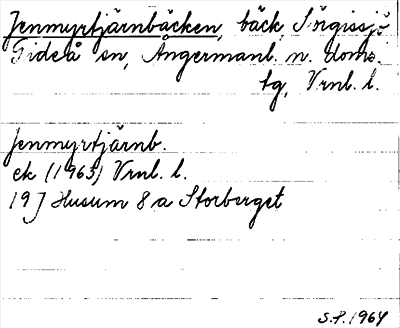 Jenmyrtjärnbäcken, bäck, Sörgissjö
Gideå sn, Ångermanl. n. doms.
tg, Vrnl. l.
Jenmyrtjärnb.
ek (1963) Vrnl. l.
19 J Husum 8 a Storberget
S.P. 1964